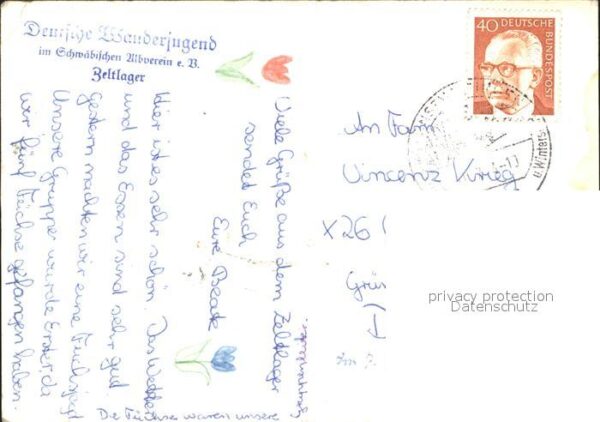 Deutsche Wanderjugend
im Schwäbischen Albverein e. V.
Zeltlager
Viele Grüße aus dem Zeltlager
sendet Euch
Eure Beate
Hier ist es sehr schön. Das Wetter
und das Essen sind sehr gut.
Gestern machten wir eine Fuchsjagd
Unsere Gruppe wurde Erster, da
wir fünf Füchse gefangen haben.
Die Füchse waren unsere
40 DEUTSCHE
BUNDESPOST
u. Winters
An Fam.
Vincenz Krieg
X261
Grü
privacy protection
Datenschutz